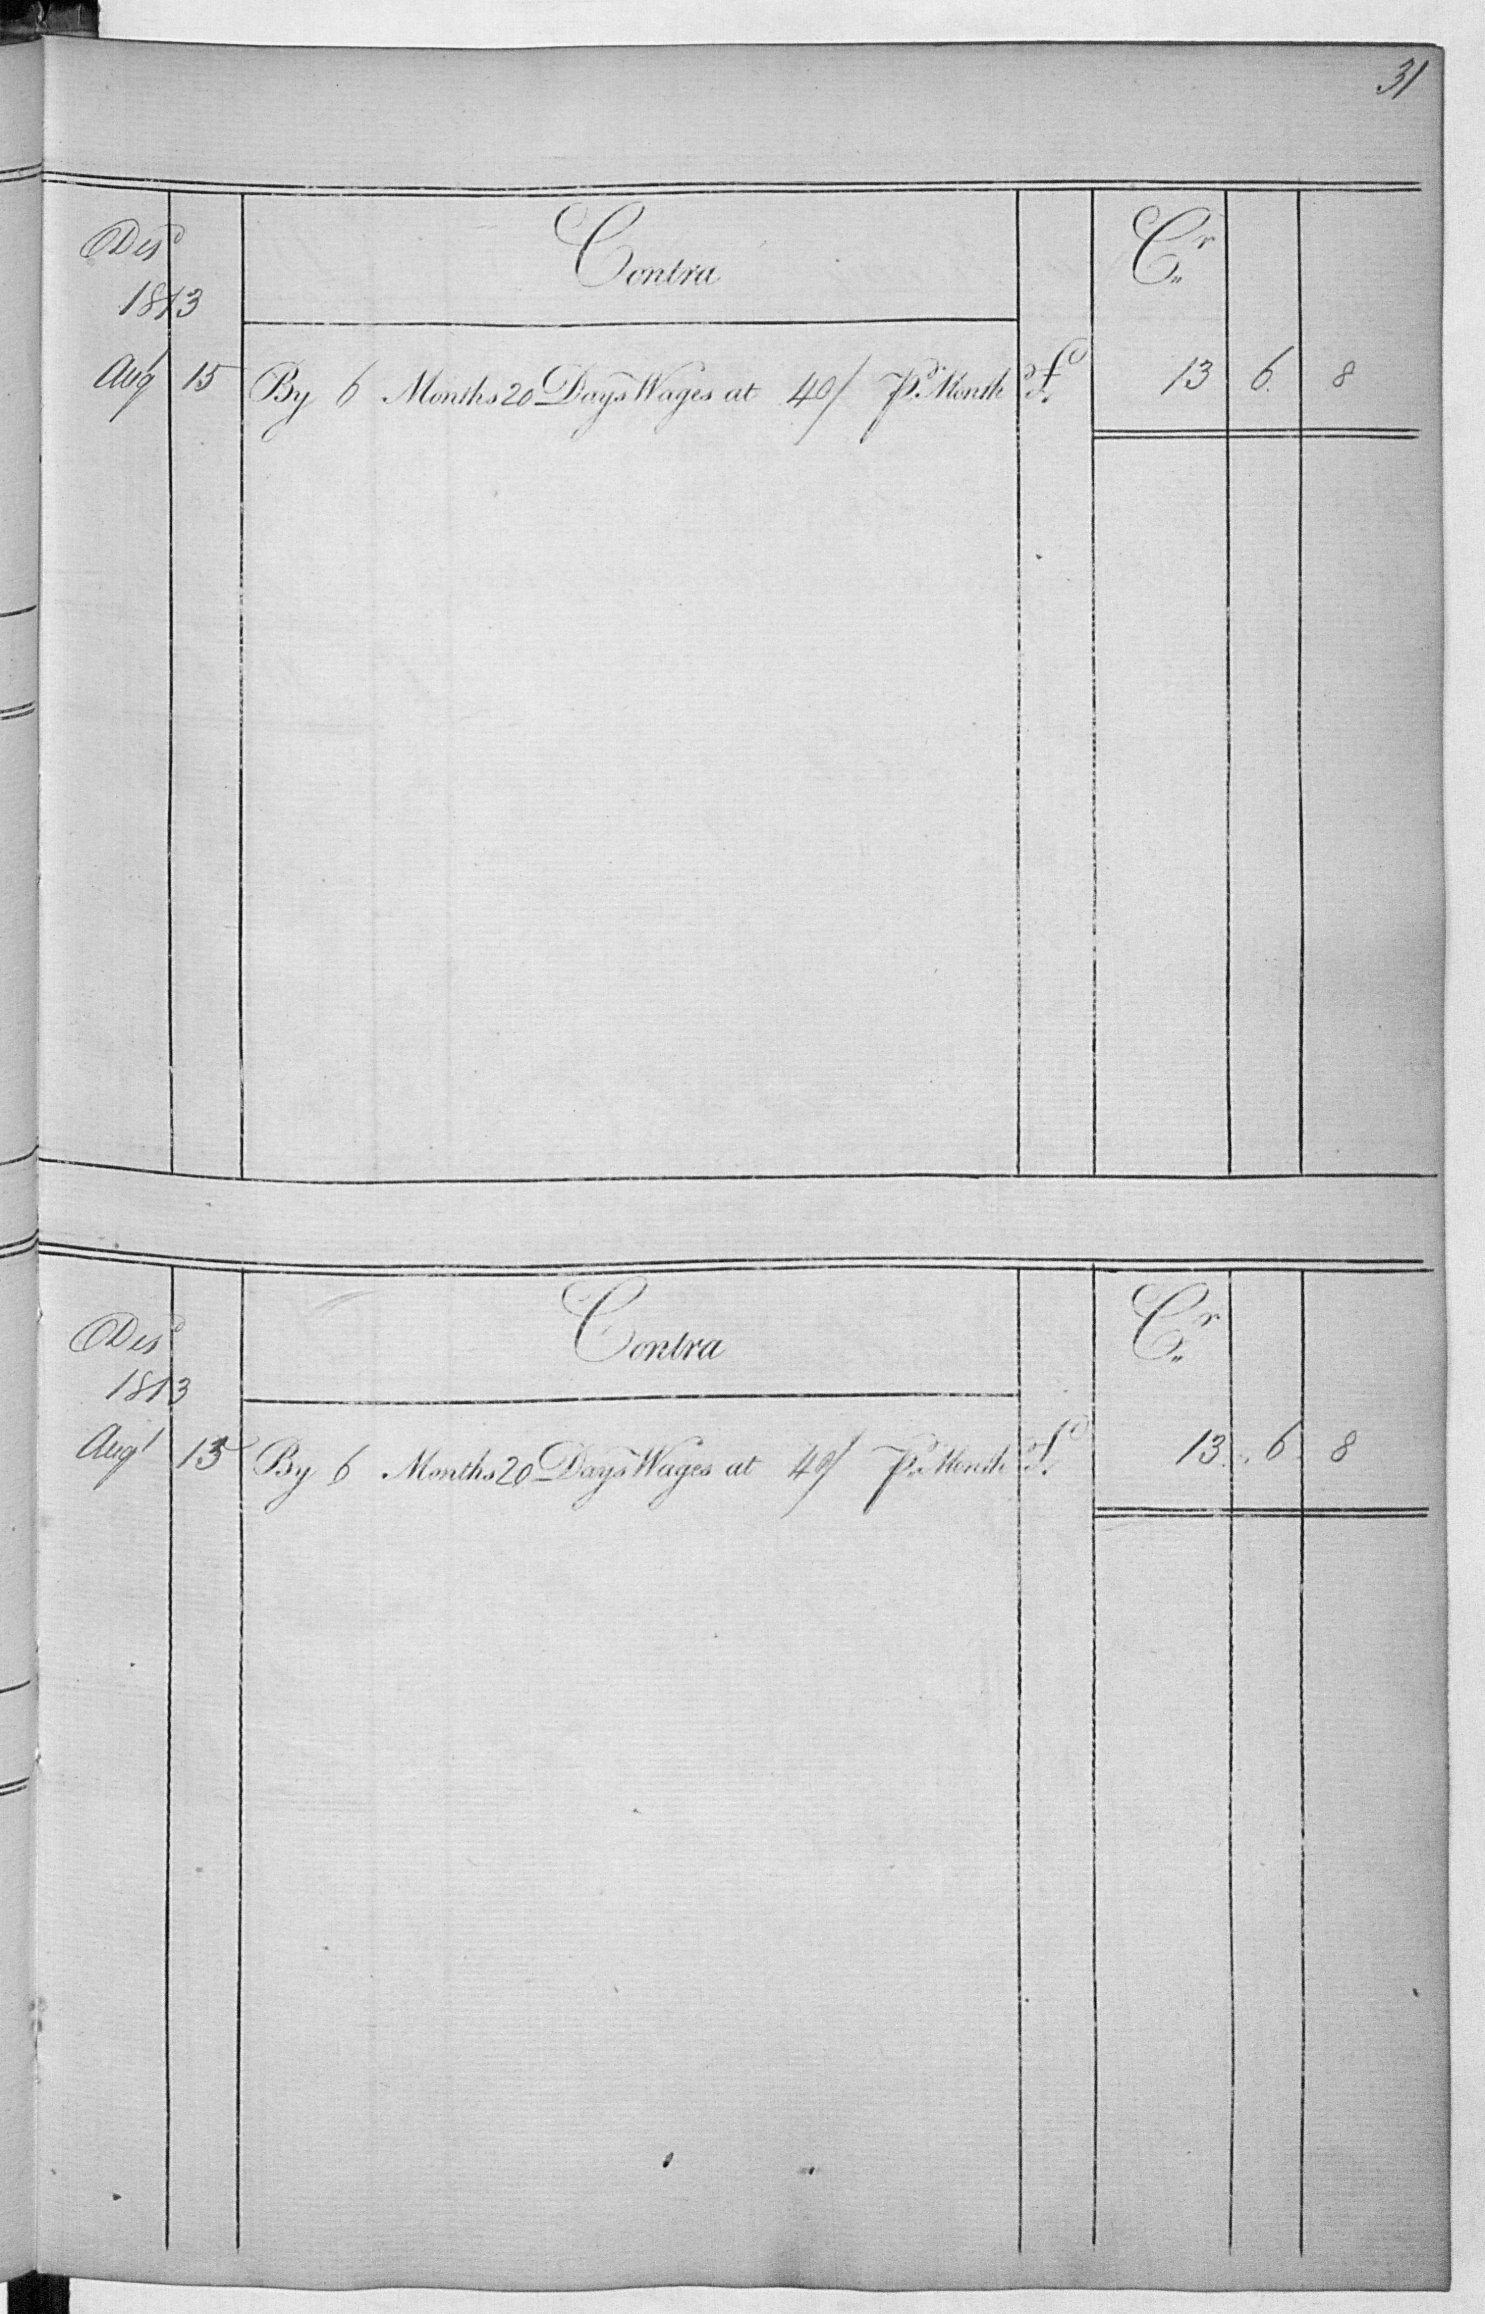 31
Disd Contra Cr
1813
Augt 15 By 6 Months 20 Days Wages at 40/ Pr Month £ 13 6 8
Disd Contra Cr
1813
Augt 15 By 6 Months 20 Days Wages at 40/ Pr Month £ 13 6 8